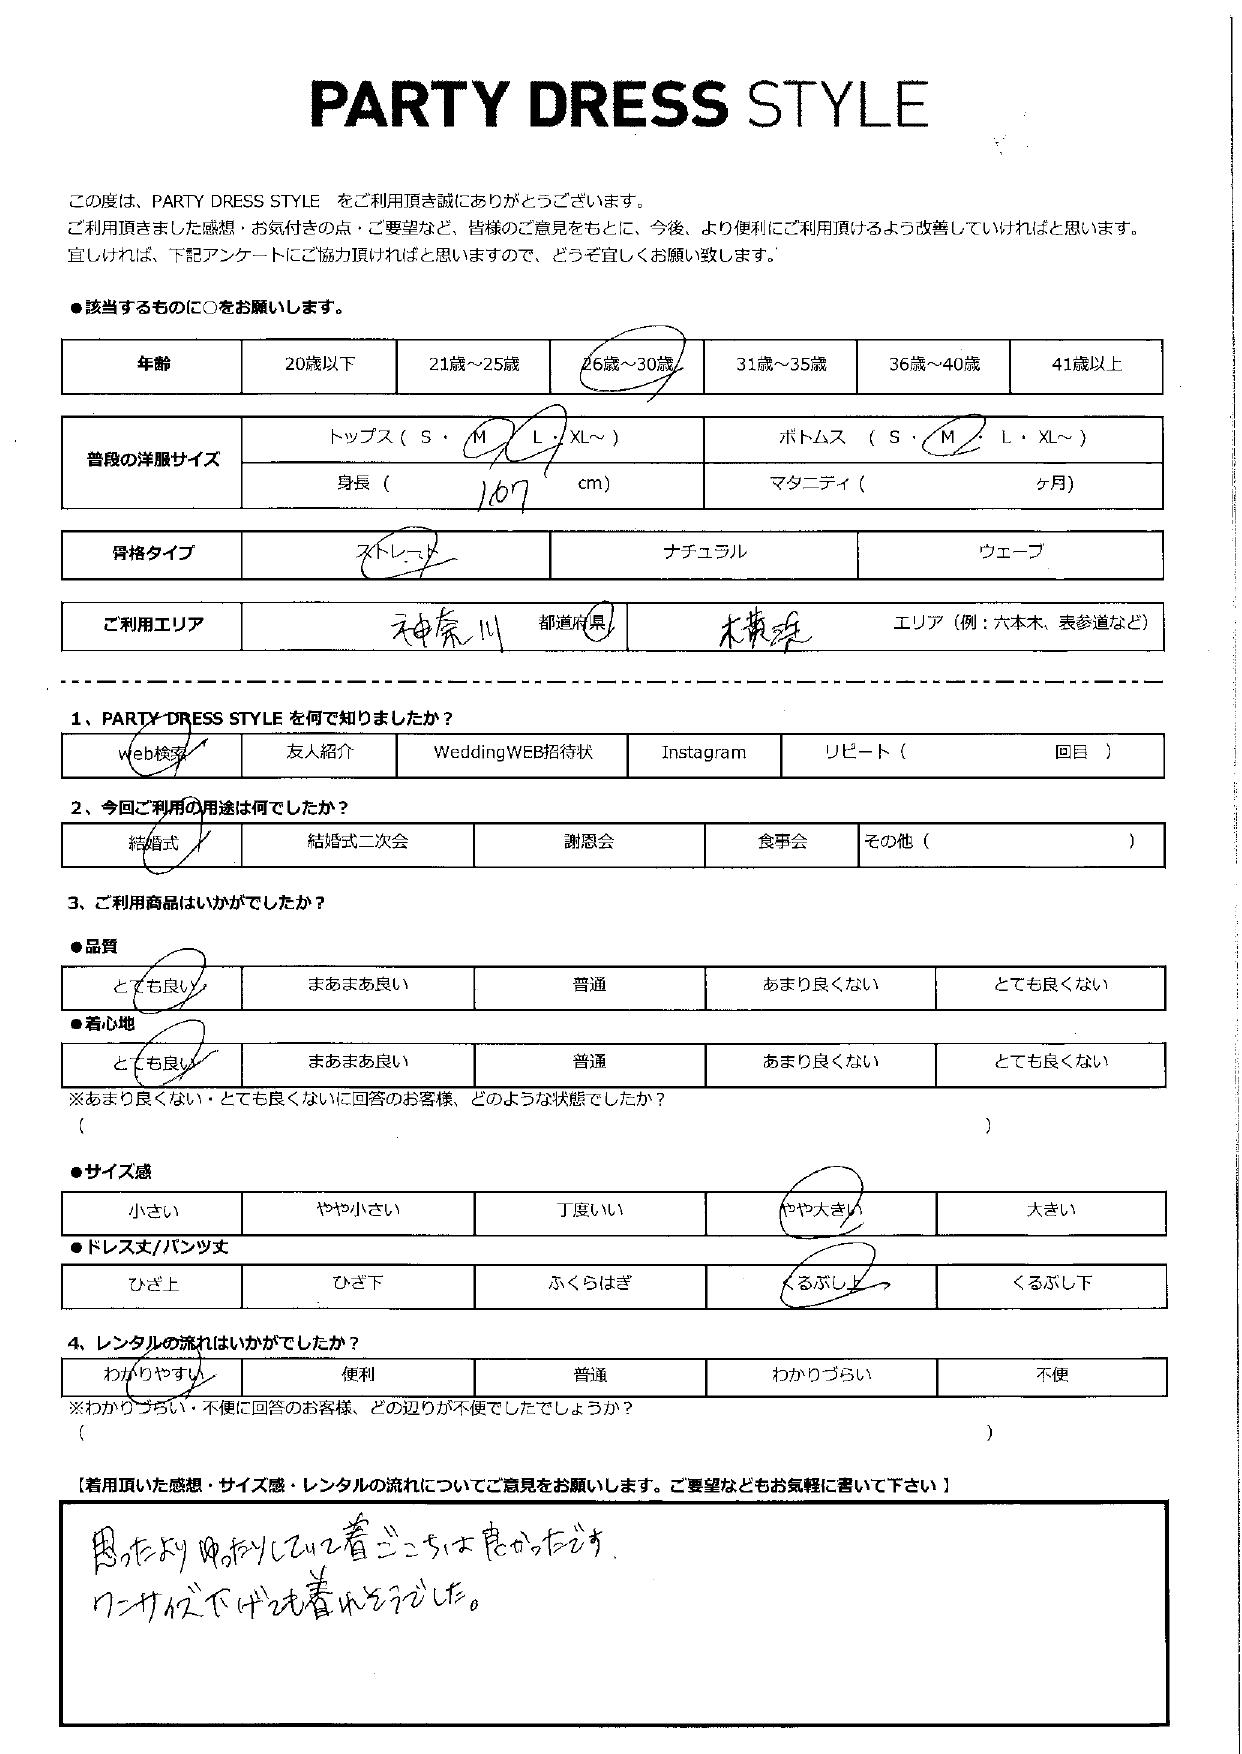 PARTY DRESS STYLE
この度は、PARTY DRESS STYLE をご利用頂き誠にありがとうございます。
ご利用頂きました感想・お気付きの点・ご要望など、皆様のご意見をもとに、今後、より便利にご利用頂けるよう改善していければと思います。
宜しければ、下記アンケートにご協力頂ければと思いますので、どうぞ宜しくお願い致します。
●該当するものに○をお願いします。
年齢 20歳以下 21歳～25歳 26歳～30歳 31歳～35歳 36歳～40歳 41歳以上
普段の洋服サイズ トップス ( S ・ M ・ L ・ XL～ ) ボトムス ( S ・ M ・ L ・ XL～ )
身長 ( 167 cm) マタニティ ( ヶ月)
骨格タイプ ストレート ナチュラル ウェーブ
ご利用エリア 神奈川 都道府県 横浜 エリア（例：六本木、表参道など）
1、PARTY DRESS STYLE を何で知りましたか？
web検索 友人紹介 WeddingWEB招待状 Instagram リピート ( 回目 )
2、今回ご利用の用途は何でしたか？
結婚式 結婚式二次会 謝恩会 食事会 その他 ( )
3、ご利用商品はいかがでしたか？
●品質
とても良い まあまあ良い 普通 あまり良くない とても良くない
●着心地
とても良い まあまあ良い 普通 あまり良くない とても良くない
※あまり良くない・とても良くないに回答のお客様、どのような状態でしたか？
( )
●サイズ感
小さい やや小さい 丁度いい やや大きい 大きい
●ドレス丈/パンツ丈
ひざ上 ひざ下 ふくらはぎ くるぶし上 くるぶし下
4、レンタルの流れはいかがでしたか？
わかりやすい 便利 普通 わかりづらい 不便
※わかりづらい・不便に回答のお客様、どの辺りが不便でしたでしょうか？
( )
【着用頂いた感想・サイズ感・レンタルの流れについてご意見をお願いします。ご要望などもお気軽に書いて下さい 】
思ったよりゆったりしていて着ごこちは良かったです.
ワンサイズ下げても着れそうでした。